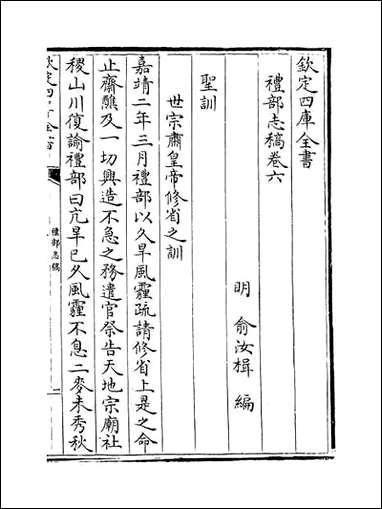 欽定四庫全書
禮部志稿卷六
明 俞汝楫 編
聖訓
世宗肅皇帝修省之訓
嘉靖二年三月禮部以久旱風霾疏請修省上是之命
止齋醮及一切興造不急之務遣官祭告天地宗廟社
稷山川復諭禮部曰亢旱已久風霾不息二麥未秀秋
欽定四庫全書
禮部志稿
一